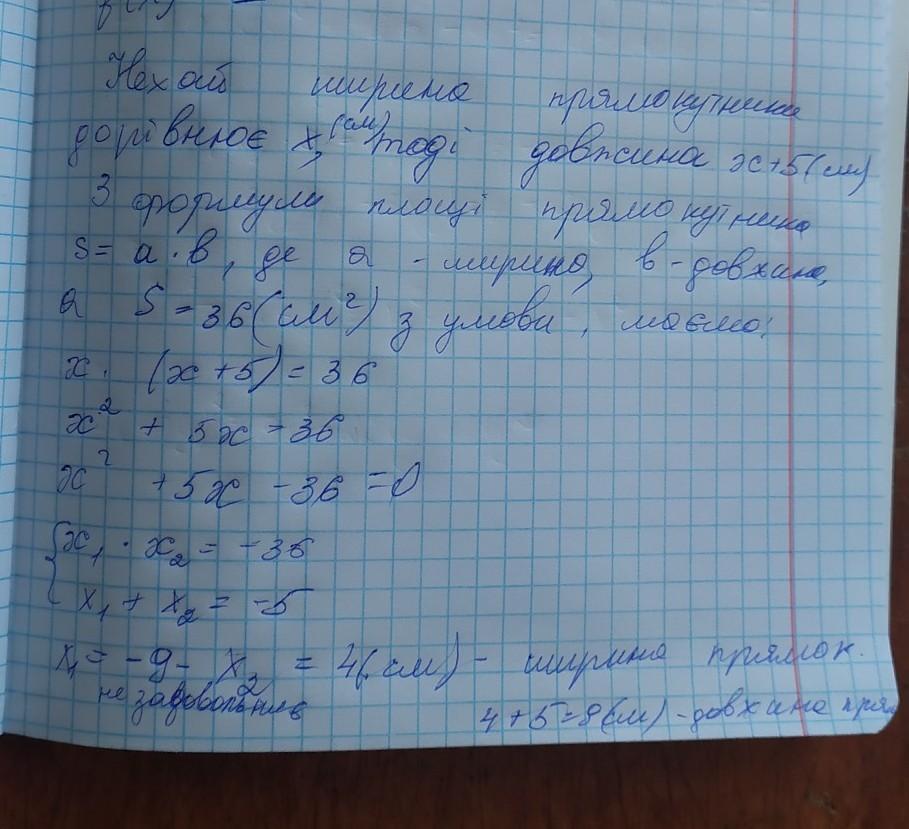 Нехай ширина прямокутника
дорівнює x(см), тоді довжина x+5(см)
З формули площі прямокутника
S= a·b, де a - ширина, b - довжина,
а S=36(см²) з умови, маємо:
x· (x+5)=36
x² + 5x=36
x² +5x -36=0
x₁·x₂= -36
x₁+x₂= -5
x₁= -9- x₂ = 4(см) - ширина прямок.
не задовольняє
4+5=9(см) -довжина прям